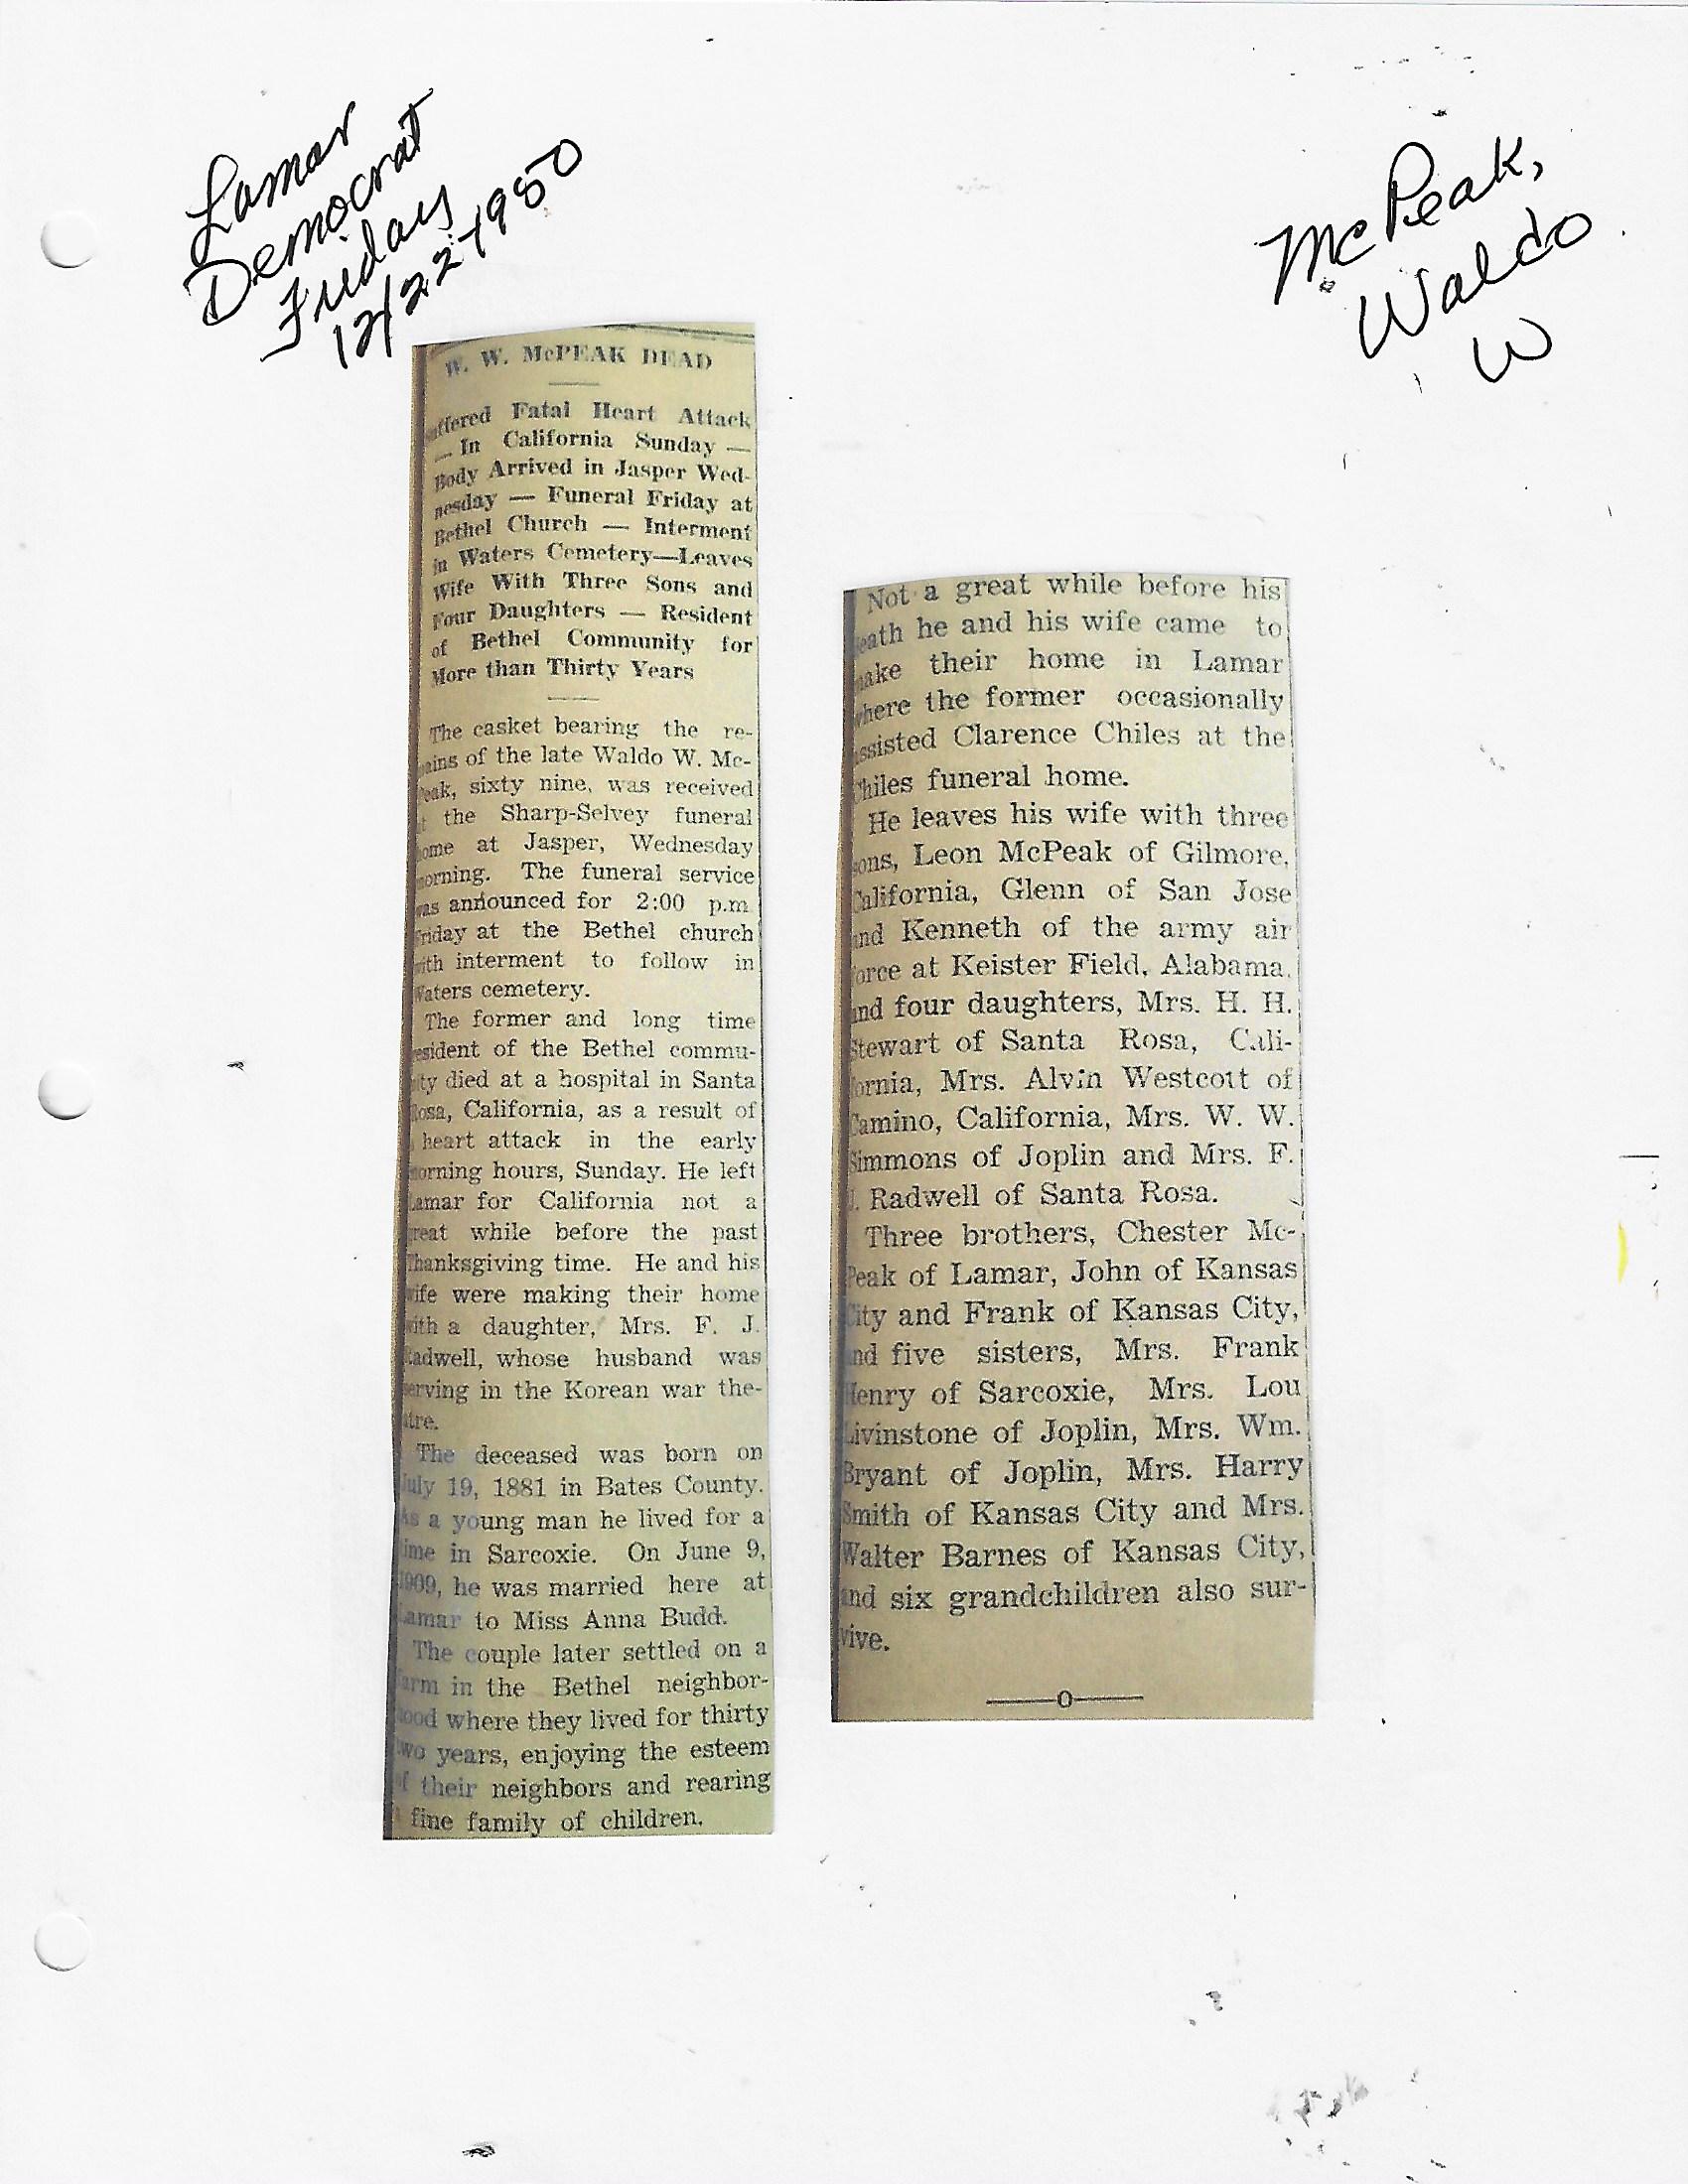 Lamar
Democrat
Friday
12/22-1950
McPeak,
Waldo
W
W. W. McPEAK DEAD
uffered Fatal Heart Attack
— In California Sunday —
Body Arrived in Jasper Wed-
nesday — Funeral Friday at
Bethel Church — Interment
in Waters Cemetery—Leaves
Wife With Three Sons and
Four Daughters — Resident
of Bethel Community for
More than Thirty Years
The casket bearing the re-
ains of the late Waldo W. Mc-
Peak, sixty nine, was received
t the Sharp-Selvey funeral
ome at Jasper, Wednesday
morning. The funeral service
was announced for 2:00 p.m
Friday at the Bethel church
with interment to follow in
Waters cemetery.
The former and long time
resident of the Bethel commu-
ity died at a hospital in Santa
Rosa, California, as a result of
heart attack in the early
morning hours, Sunday. He left
Lamar for California not a
reat while before the past
Thanksgiving time. He and his
wife were making their home
with a daughter, Mrs. F. J.
Radwell, whose husband was
serving in the Korean war the-
atre.
The deceased was born on
July 19, 1881 in Bates County.
As a young man he lived for a
time in Sarcoxie. On June 9,
1909, he was married here at
Lamar to Miss Anna Budd.
The couple later settled on a
farm in the Bethel neighbor-
ood where they lived for thirty
two years, enjoying the esteem
of their neighbors and rearing
fine family of children.
Not a great while before his
eath he and his wife came to
make their home in Lamar
where the former occasionally
assisted Clarence Chiles at the
Chiles funeral home.
He leaves his wife with three
sons, Leon McPeak of Gilmore,
California, Glenn of San Jose
and Kenneth of the army air
force at Keister Field, Alabama,
and four daughters, Mrs. H. H.
Stewart of Santa Rosa, Cali-
fornia, Mrs. Alvin Westcott of
Camino, California, Mrs. W. W.
Simmons of Joplin and Mrs. F.
J. Radwell of Santa Rosa.
Three brothers, Chester Mc-
Peak of Lamar, John of Kansas
City and Frank of Kansas City,
and five sisters, Mrs. Frank
Henry of Sarcoxie, Mrs. Lou
Livinstone of Joplin, Mrs. Wm.
Bryant of Joplin, Mrs. Harry
Smith of Kansas City and Mrs.
Walter Barnes of Kansas City,
and six grandchildren also sur-
vive.
——o——